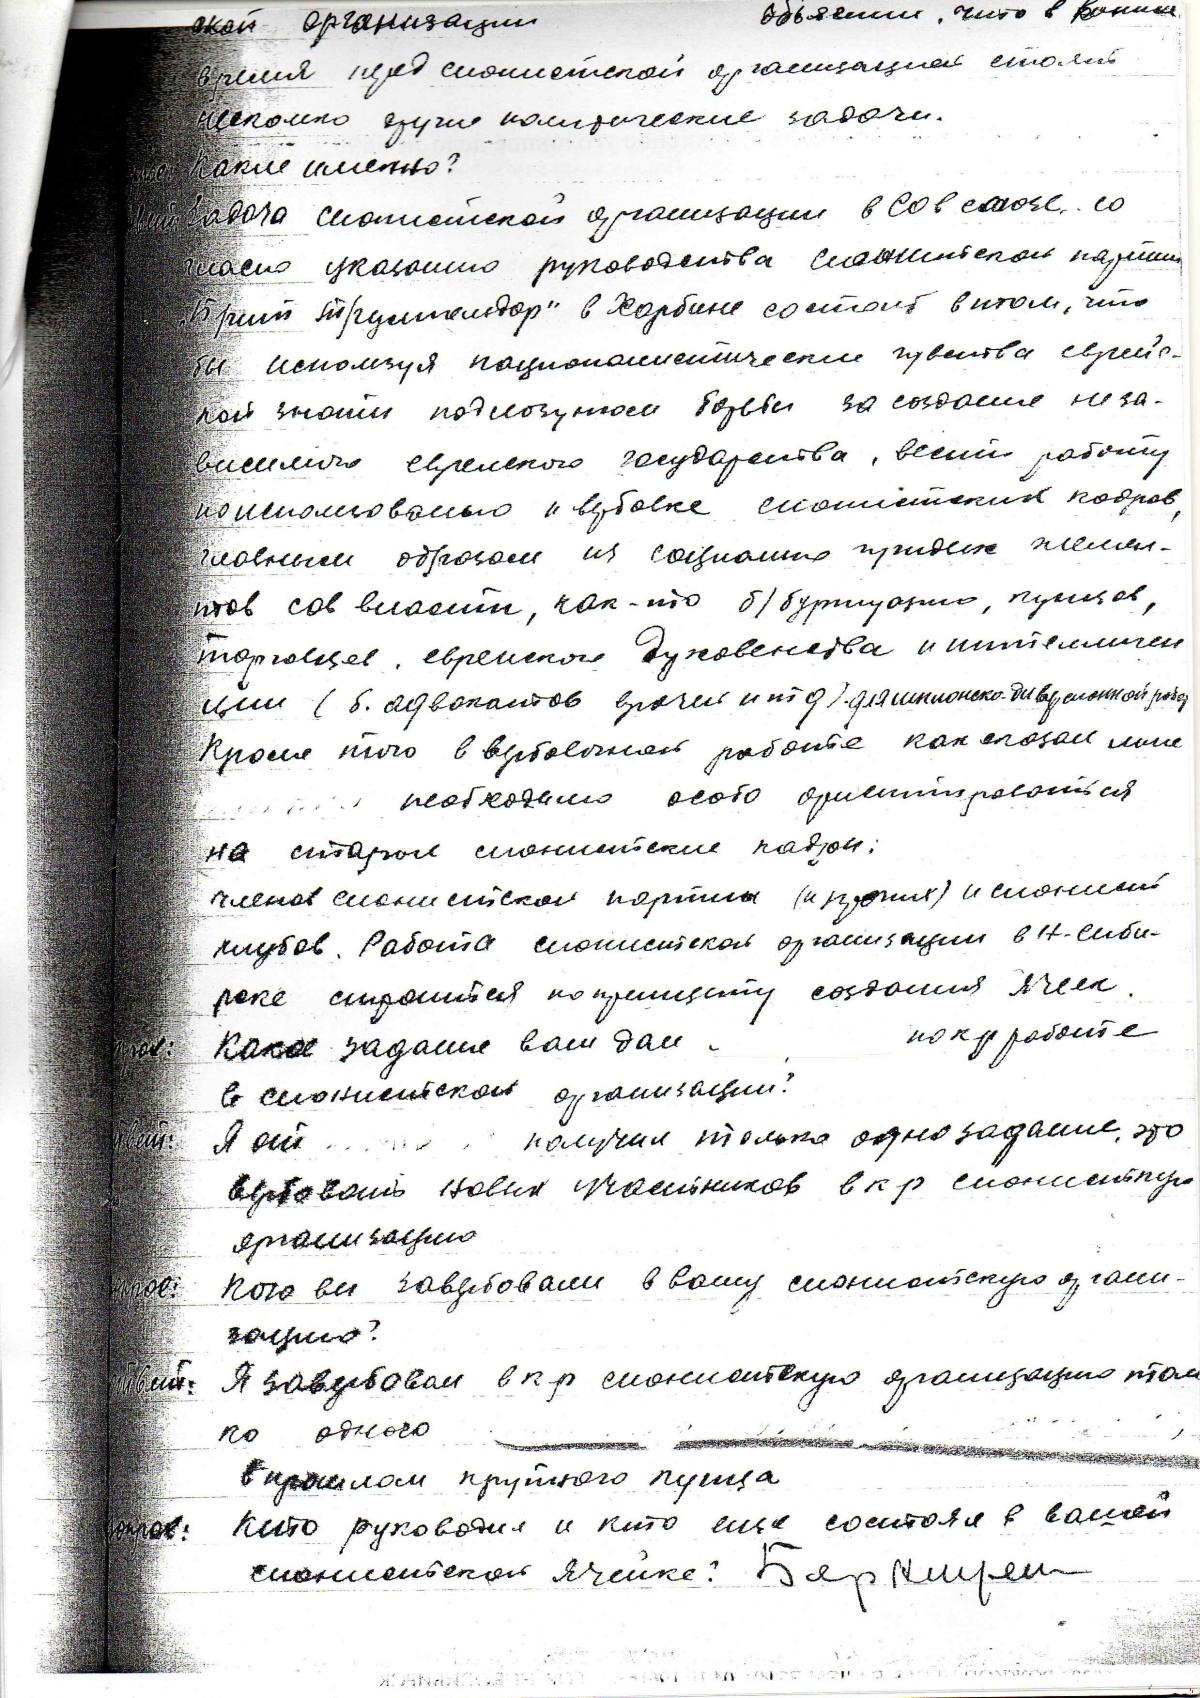 ской организации объяснил, что в
время перед сионистской организацией стоят
несколько другие политические задачи.
Какие именно?
Задача сионистской организации в Совсоюзе, со
гласно указанию руководства сионистской партии
"Брит Трумпельдор" в Харбине состоит в том, что
бы используя националистические чувства еврейс-
кой знати под лозунгом борьбы за создание неза-
висимого еврейского государства, вести работу
по использованию и вербовке сионистских кадров,
главным образом из социально чуждых элемен-
тов соввласти, как-то б/буржуазию, купцов,
торговцев, еврейского духовенства и интеллиген
ции (б. адвокатов врачей и т д) для шпионско-диверсионной
Кроме того в вербовочной работе как сказал мне
необходимо особо ориентироваться
на старые сионистские кадры:
членов сионистской партии и сионист
клубов. Работа сионистской организации в Н-Сиби-
рске строится по принципу создания ячеек.
Какое задание вам дал по к/р работе
в сионистской организации?
Я от получил только одно задание, это
вербовать новых участников в к р сионистскую
организацию
Кого вы завербовали в вашу сионистскую органи-
зацию?
Я завербовал в к р сионистскую организацию толь
ко одного
в прошлом крупного купца
Кто руководил и кто еще состоял в вашей
сионистской ячейке?